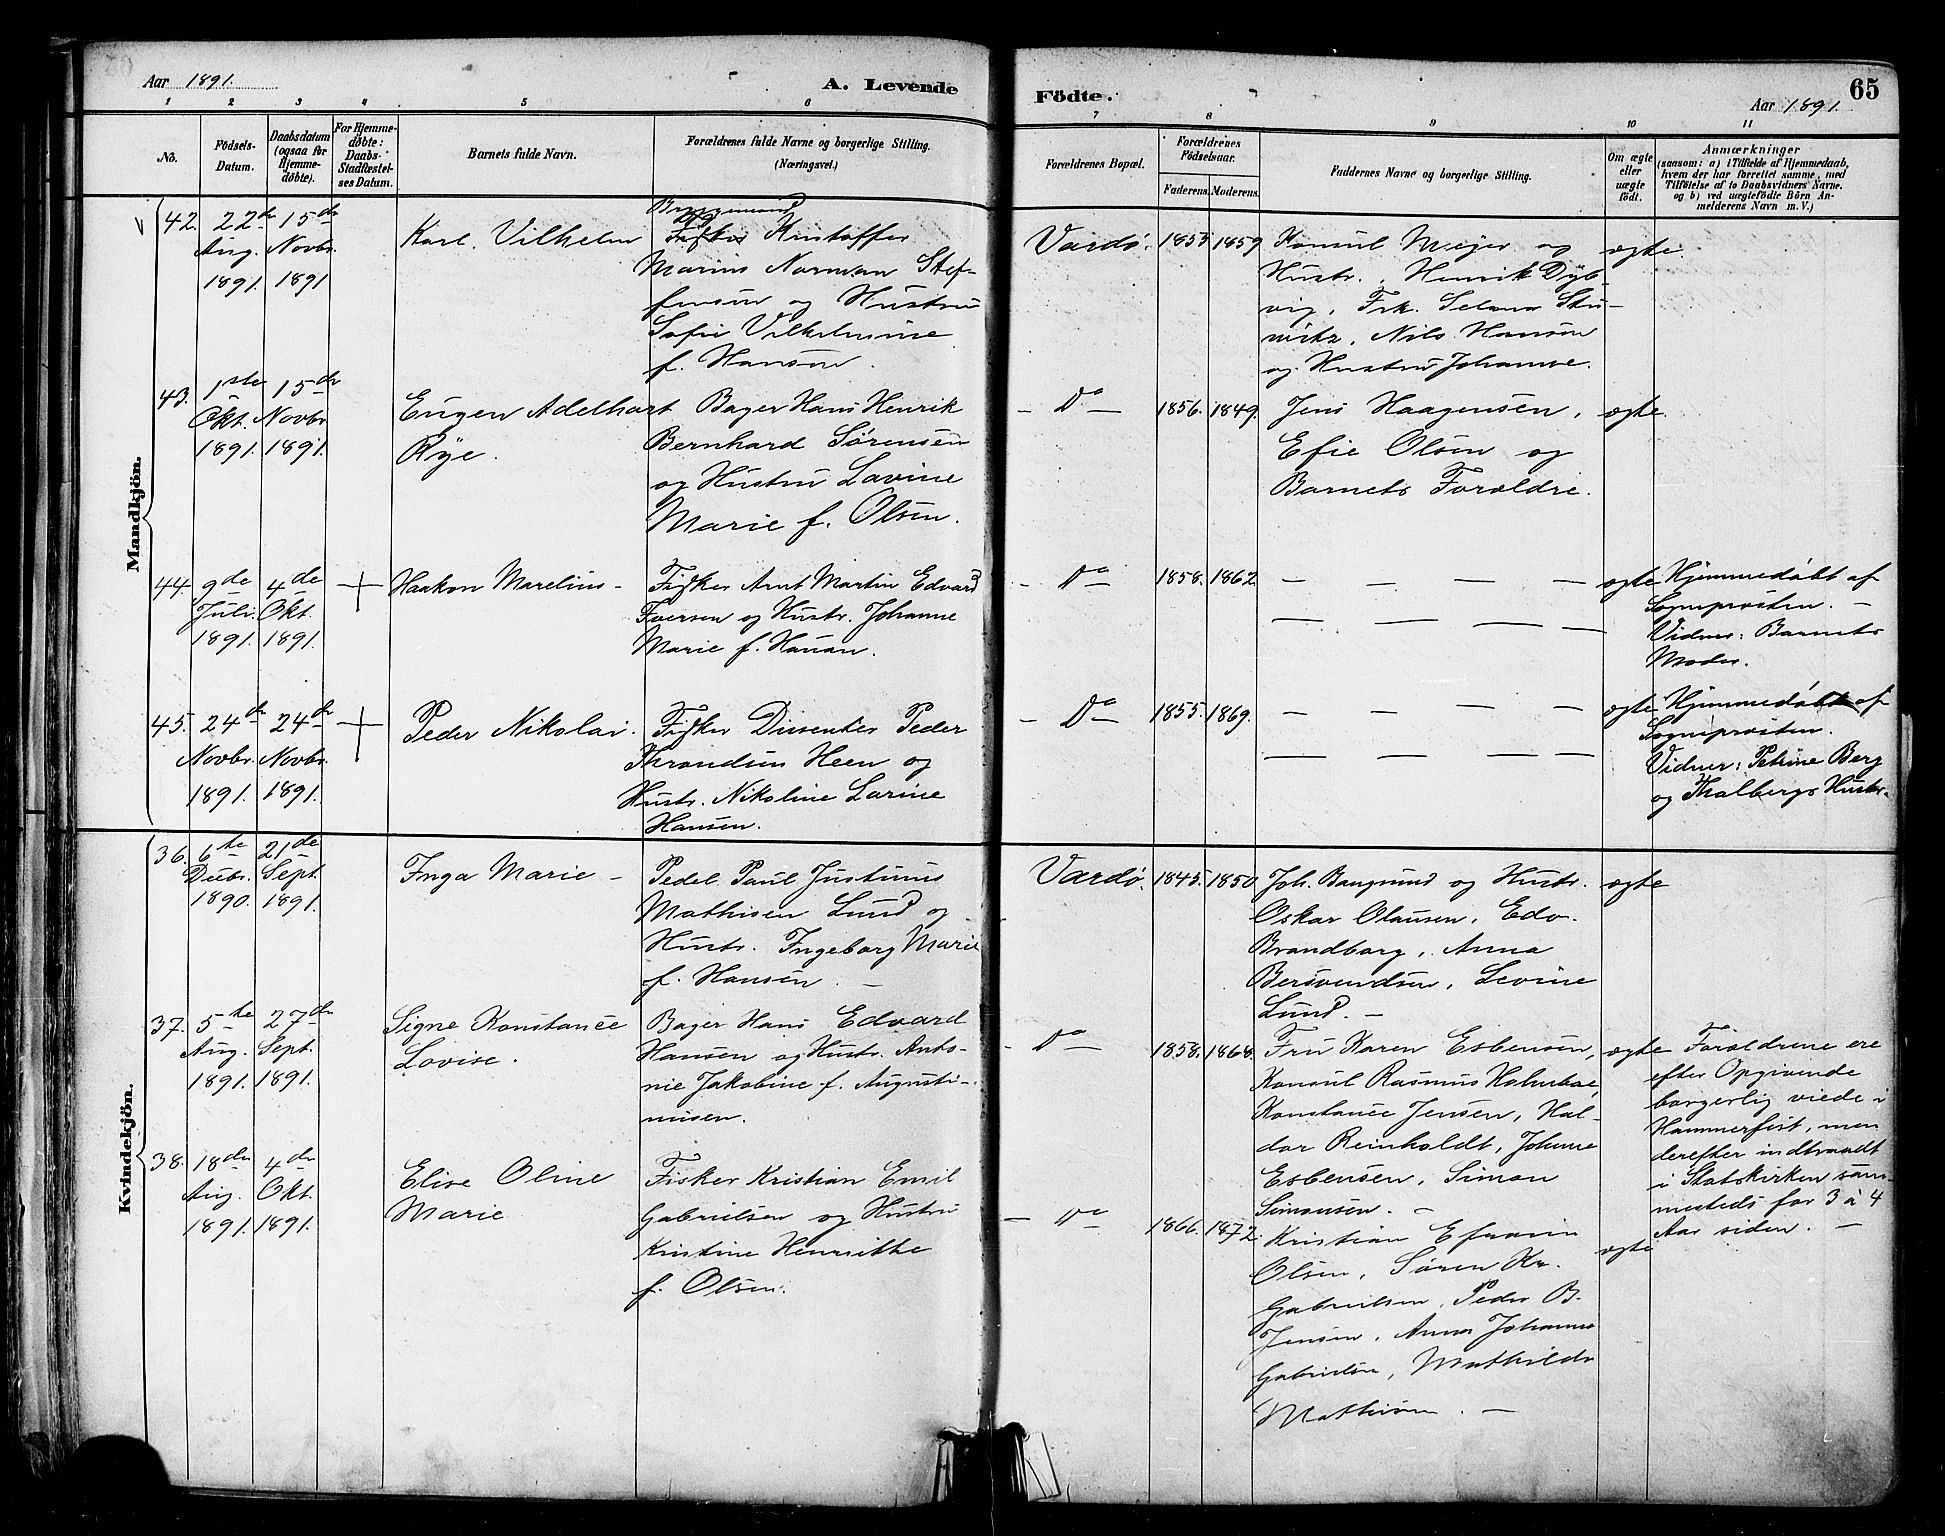 Aar 1891.
A. Levende
Födte.
65
Aar 1891.
1 2 3 4 5 6 7 8 9 10 11
No.
Födsels-
Datum.
Daabsdatum
(ogsaa for
Hjemme-
døbte).
For Hjemme-
døbte:
Daabs-
Stadfæstel-
ses Datum.
Barnets fulde Navn.
Forældrenes fulde Navne og borgerlige Stilling.
(Næringsvei.)
Forældrenes Bopæl.
Forældrenes
Födselsaar.
Faderens. Moderens.
Faddernes Navne og borgerlige Stilling.
Om ægte
eller
uægte
født.
Anmærkninger
(saasom: a) i Tilfælde af Hjemmedaab,
hvem der har forrettet samme, med
Tilföielse af to Daabsvidners Navne.
og b) ved uægtefødte Börn An-
melderens Navn m. V.)
Mandkjön.
42. 22de
Aug.
1891.
15de
Novbr.
1891
Karl Vilhelm
Bryggemand
og
Fisker Kristoffer
Marius Norman Stef-
fensen og Hustru
Sofie Vilhelmine
f. Hansen.
Vardö. 1853 1859
Konsul Meyer og
Hustr., Henrik Dyb-
vig, Frk. Selma Stu-
witz, Nils Hansen
og Hustru Johanne.
ægte.
43. 1ste
Okt.
1891.
15de
Novbr.
1891.
Eugen Adelhart
Rye.
Bager Hans Henrik
Bernhard Sørensen
og Hustru Lavine
Marie f. Olsen.
— Do — 1856. 1849.
Jens Haagensen,
Efie Olsen og
Barnets Forældre.
ægte.
44. 9de
Juli
1891.
4de
Okt.
1891.
+
Haakon Marelius —
Fisker Arnt Martin Edvard
Iversen og Hustr. Johanne
Marie f. Hanan.
— Do — 1858. 1862.
— — — —
— — — —
ægte
Hjemmedöbt af
Sogneprösten. —
Vidner: Barnets
Moder.
45. 24de
Novbr.
1891.
24de
Novbr.
1891.
+
Peder Nikolai.
Fisker Dissenter Peder
Throndsen Heen og
Hustr. Nikoline Larine
Hansen.
— Do — 1855. 1869.
— — — —
— — — —
ægte
Hjemmedöbt af
Sogneprösten.
Vidner: Petrine Berg
og Thalbergs Hustr.
Kvindekjön.
36. 6te
Decbr.
1890.
21de
Sept.
1891.
Inga Marie —
Pedel Paul Justinus
Mathisen Lund og
Hustr. Ingeborg Marie
f. Hansen. —
Vardö. 1845. 1850
Joh. Bangsund og Hustr.
Oskar Olausen, Edv.
Brandborg, Anna
Bersvendsen, Levine
Lund. —
ægte
37. 5te
Aug.
1891.
27de
Sept.
1891.
Signe Konstance
Lovise.
Bager Hans Edvard
Hansen og Hustr. Anto-
nie Jakobine f. Augusti-
nusen.
— Do — 1858. 1868.
Fru Karen Esbensen,
Konsul Rasmus Holmboe,
Konstance Jensen, Hal-
dor Reinholdt, Johanne
Esbensen, Simon
Simonsen. —
ægte
Forældrene ere
efter Opgivende
borgerlig viede i
Hammerfest, men
derefter indtraadt
i Statskirken sam-
mesteds for 3 à 4
Aar siden. —
38. 18de
Aug.
1891.
4de
Okt.
1891.
Elise Oline
Marie
Fisker Kristian Emil
Gabrielsen og Hustru
Kristine Henriette
f. Olsen.
— Do — 1866. 1872.
Kristian Efraim
Olsen, Søren Kr.
Gabrielsen, Peder B.
Jensen, Anna Johanne
Gabrielsen, Mathilde
Mathisen. —
ægte